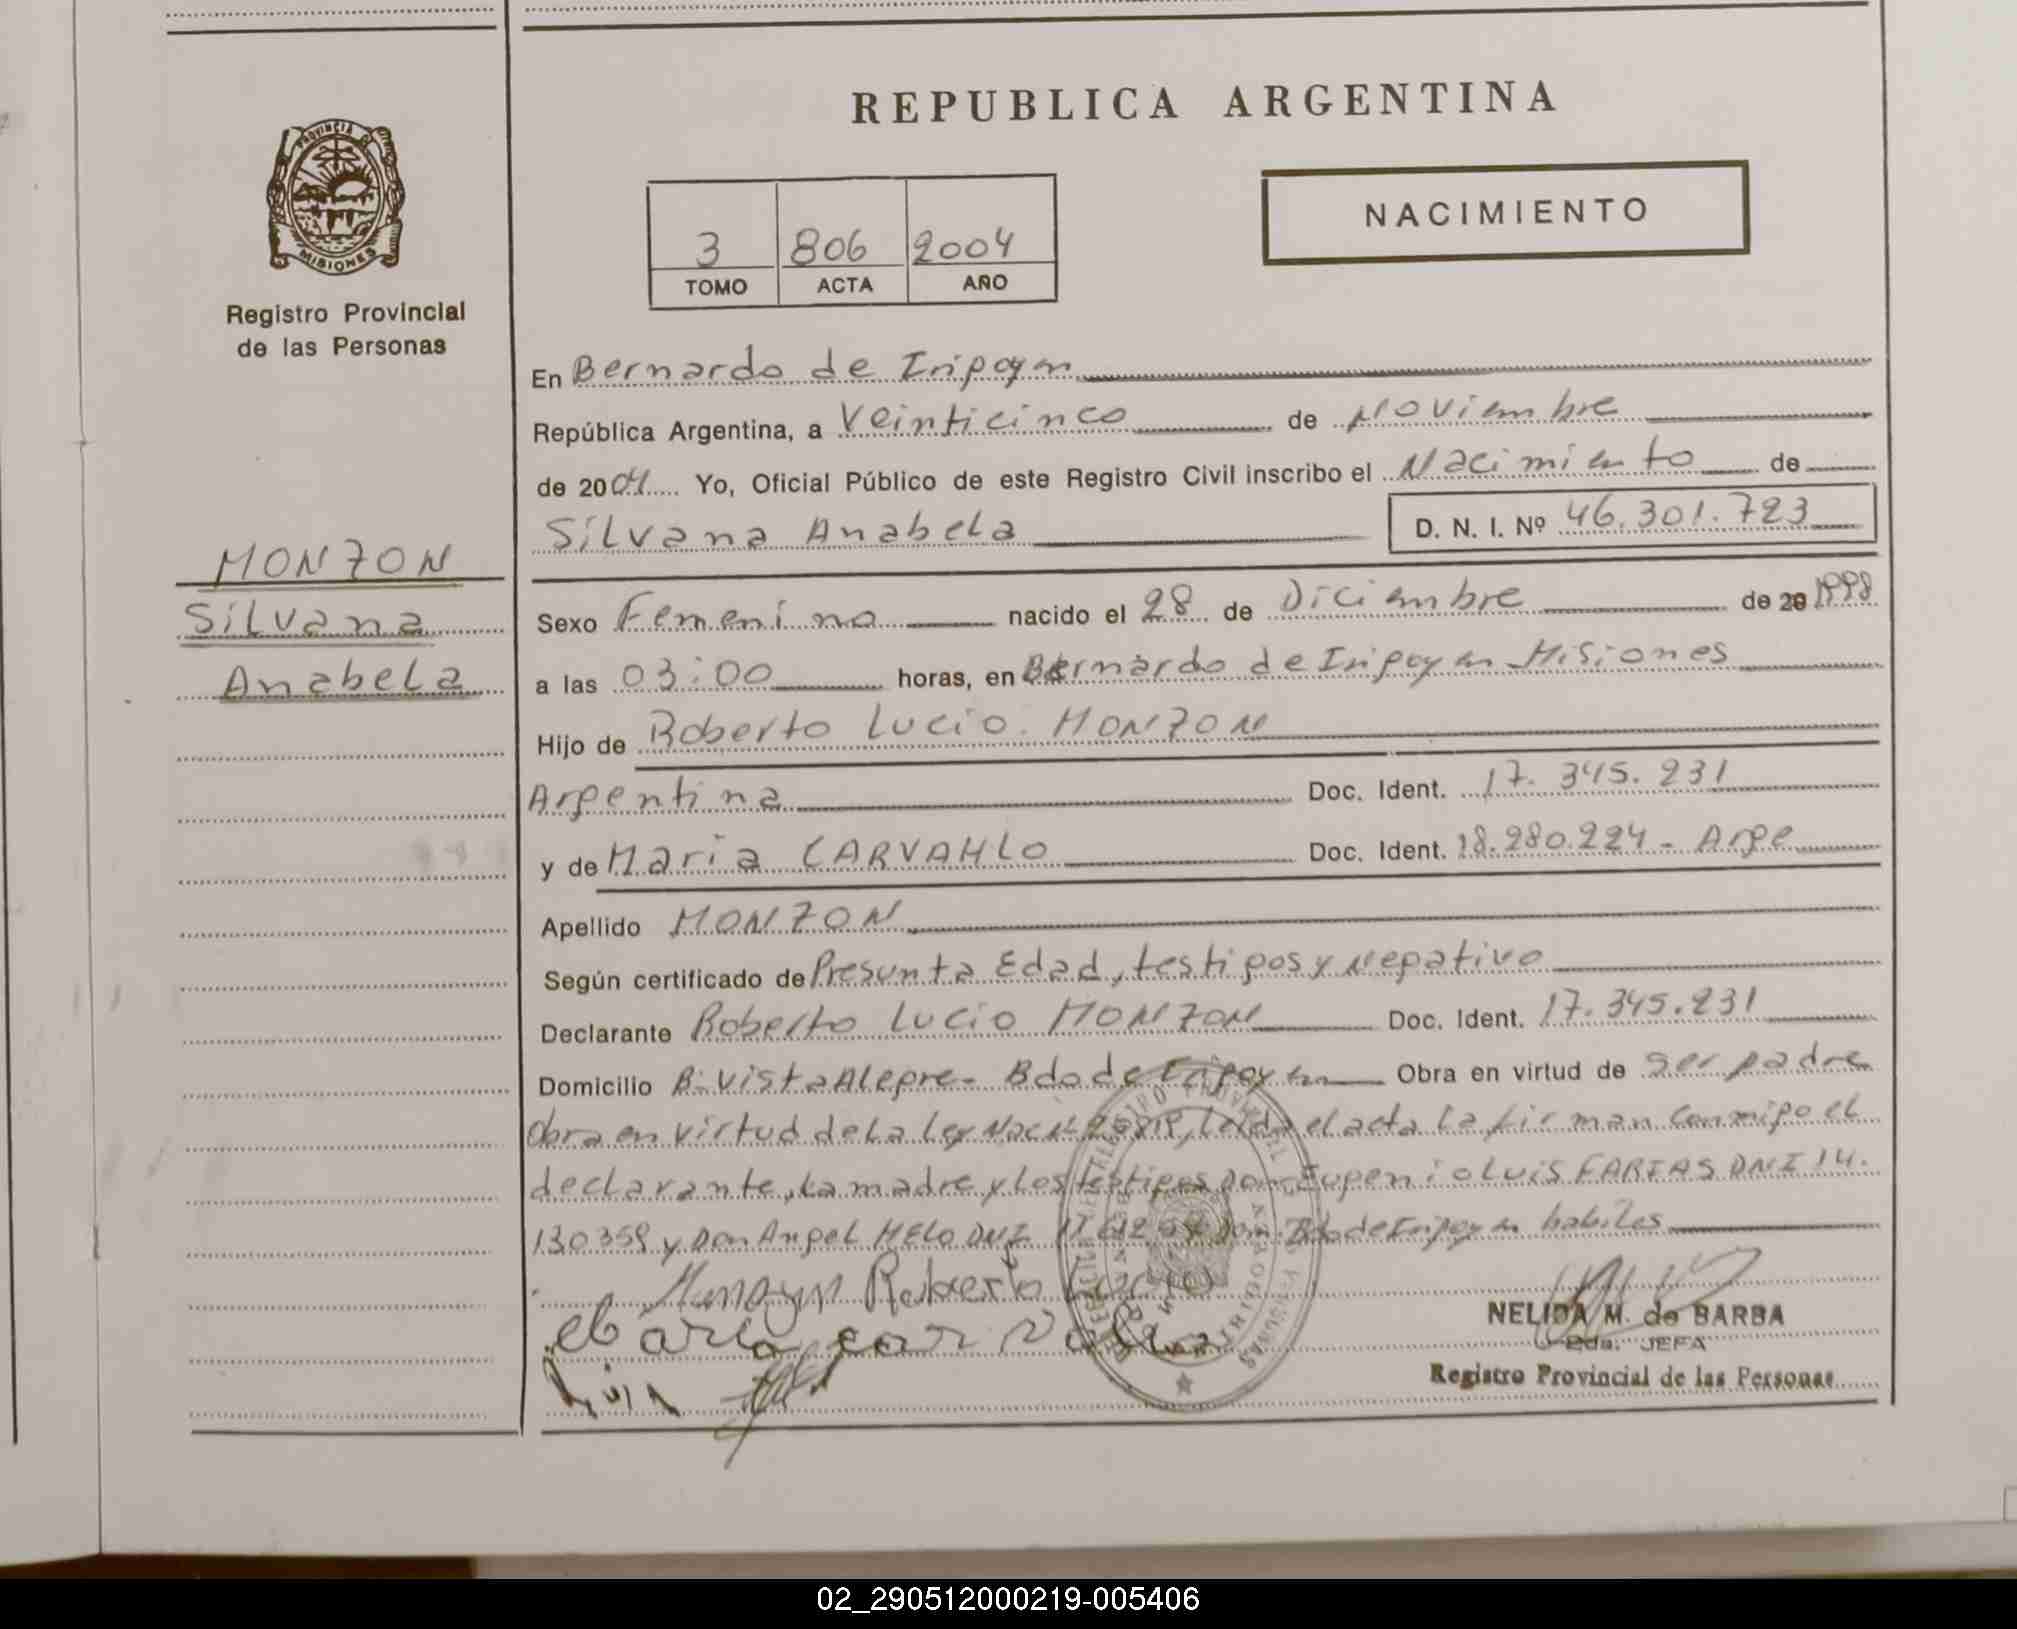 REPUBLICA ARGENTINA
PROVINCIA DE
MISIONES
Registro Provincial
de las Personas
NACIMIENTO
3 806 2004
TOMO ACTA AÑO
En Bernardo de Irigoyen
República Argentina, a Veinticinco de Noviembre
de 2004 Yo, Oficial Público de este Registro Civil inscribo el Nacimiento de
Silvana Anabela D. N. I. Nº 46.301.723
MONZON
Silvana
Anabela
Sexo Femenino nacido el 28 de Diciembre de 20 1998
a las 03:00 horas, en Bernardo de Irigoyen Misiones
Hijo de Roberto Lucio MONZON
Argentina Doc. Ident. 17.345.231
y de Maria CARVAHLO Doc. Ident. 18.280.224 - Arge
Apellido MONZON
Según certificado de Presunta Edad, testigos y Negativo
Declarante Roberto Lucio MONZON Doc. Ident. 17.345.231
Domicilio B: Vista Alegre - Bdo de Irigoyen Obra en virtud de ser padre
Obra en virtud de la Ley Nac Leida el acta la firman conmigo el
declarante, la madre y los testigos Don Eugenio Luis FARIAS DNI 14.
130359 y Don Angel MELO DNI Dom. Bdo de Irigoyen habiles
Monzon Roberto Lucio
Maria
NELIDA M. de BARBA
JEFA
Registro Provincial de las Personas
02_290512000219-005406